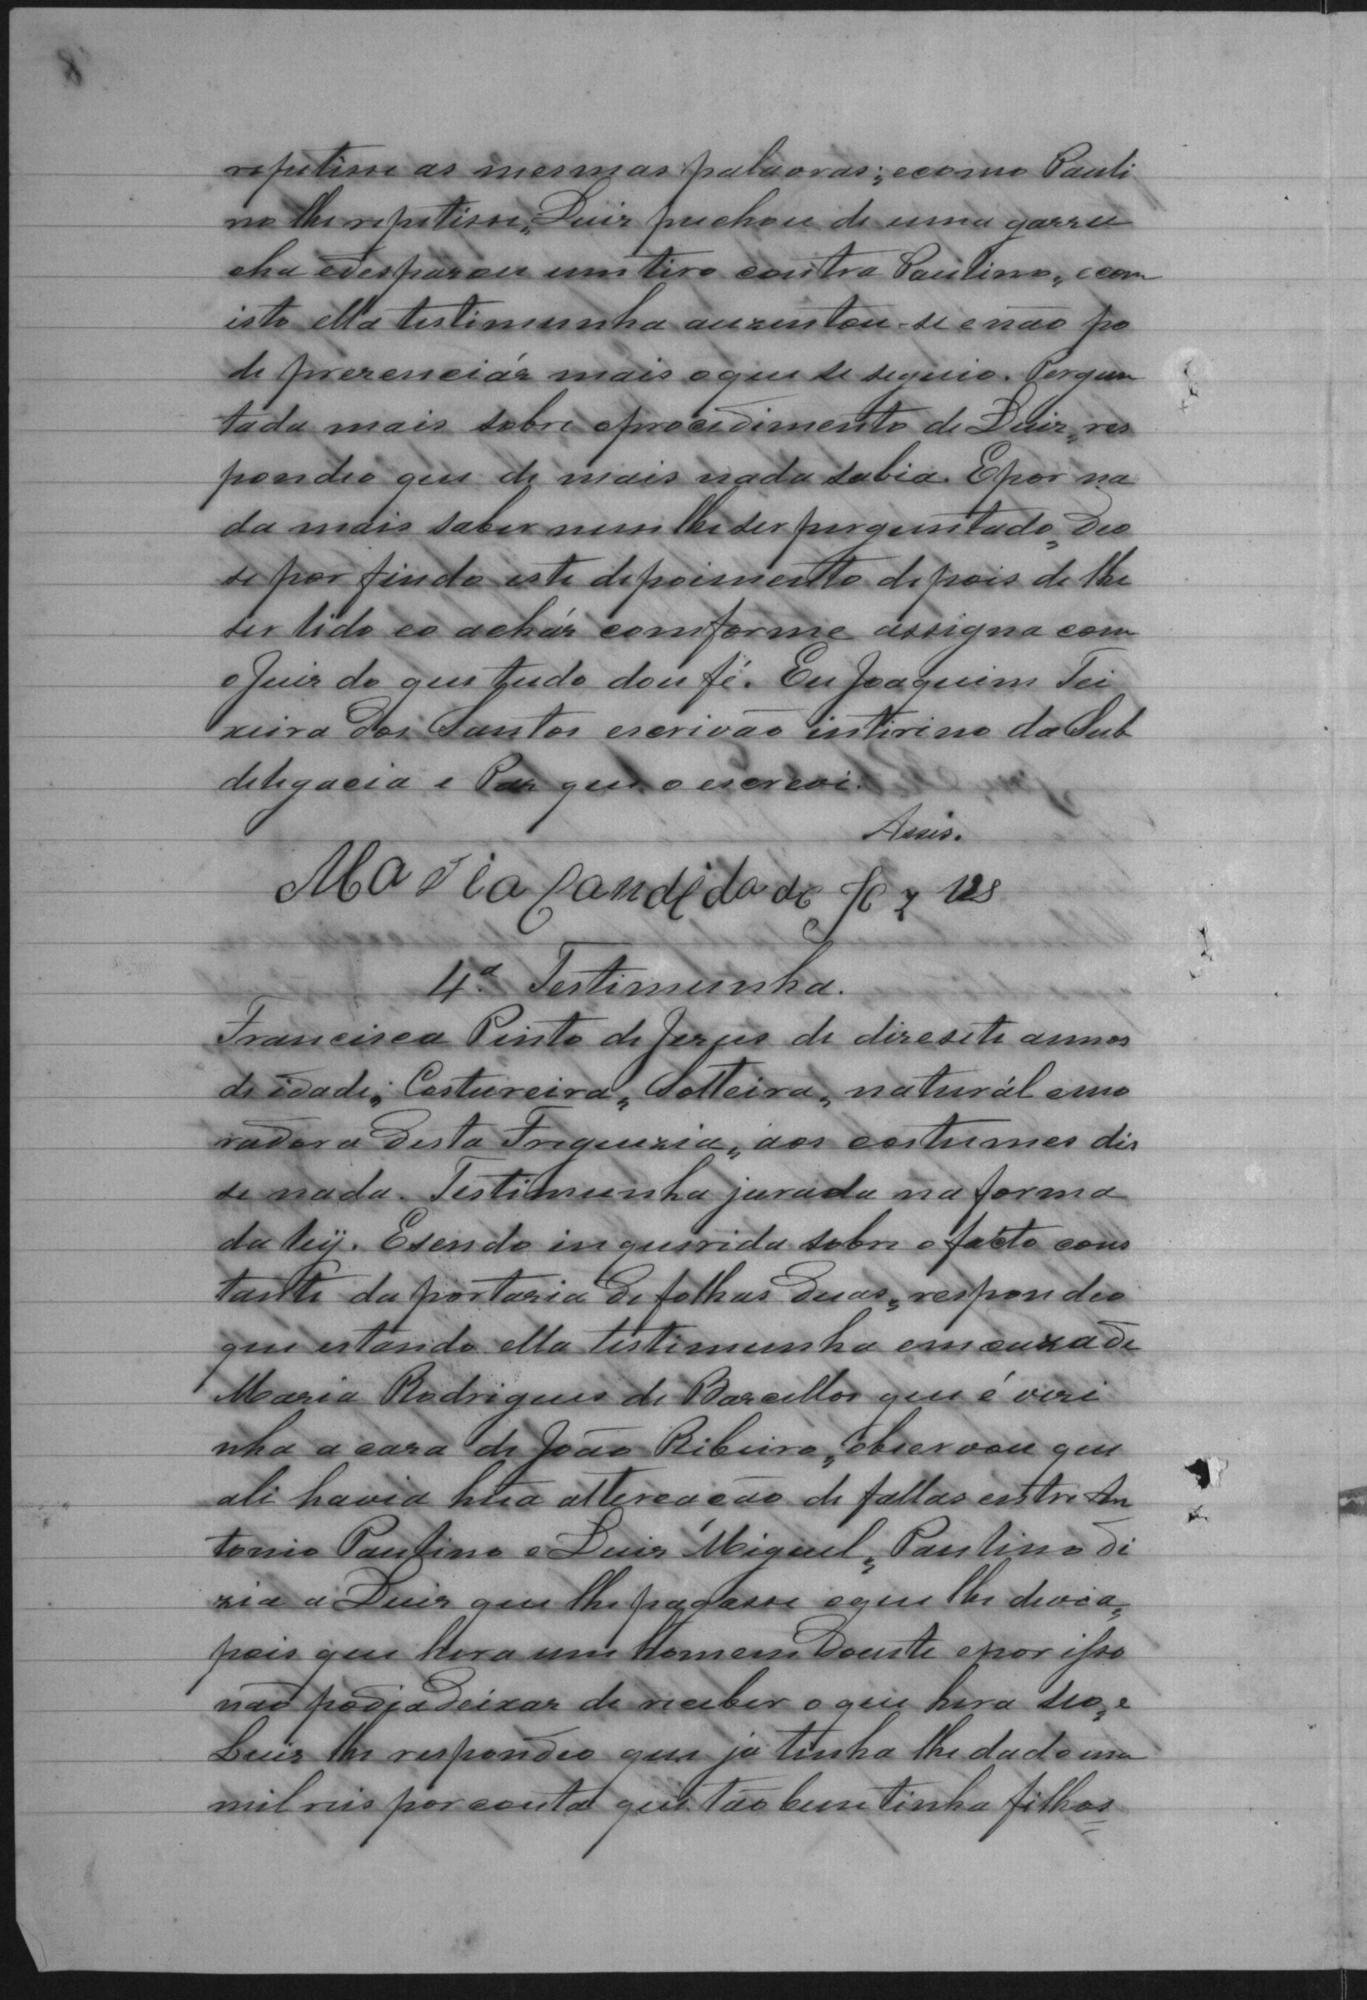 repetisse as mesmas palavras; e como Pauli
no lhe repetisse, Luiz puchou de uma garru
cha edesparou um tiro contra Paulino, e com
isto ella testimunha auzentou-se e não po
de prezenciár mais oque se seguio. Pergun
tada mais sobre oprocedimento de Luiz, res
pondeo que de mais nada sabia. Epor na
da mais saber nem lhe ser perguntado, deo
se por findo este depoimento depois de lhe
ser lido eo achár comforme assigna com
o Juiz do que tudo dou fé. Eu Joaquim Tei
xeira dos Santos escrivão intirino da Sub
delegacia e Paz que o escrevi.
Assis.
Maria Candida de Jezus
4ª Testimunha.
Francisca Pinto de Jezus de dizesete annos
de idade, Costureira, Solteira, naturál e mo
radora desta Freguezia, aos costumes dis
se nada. Testimunha jurada na forma
da ley. Esendo inquerida sobre o facto cons
tante da portaria de folhas duas, respondeo
que estando ella testimunha em caza de
Maria Rodrigues de Barcellos que é vizi
nha a caza de João Ribeiro, observou que
ali havia hũa altercação de fallas entre An
tonio Paulino e Luiz Miguel, Paulino di
zia a Luiz que lhe pagasse oque lhe devia,
pois que hera um homem doente epor isso
não podia deixar de receber oque hera seo, e
Luiz lhe respondeo que já tinha lhe dado um
mil reis por conta que tão bem tinha filhos